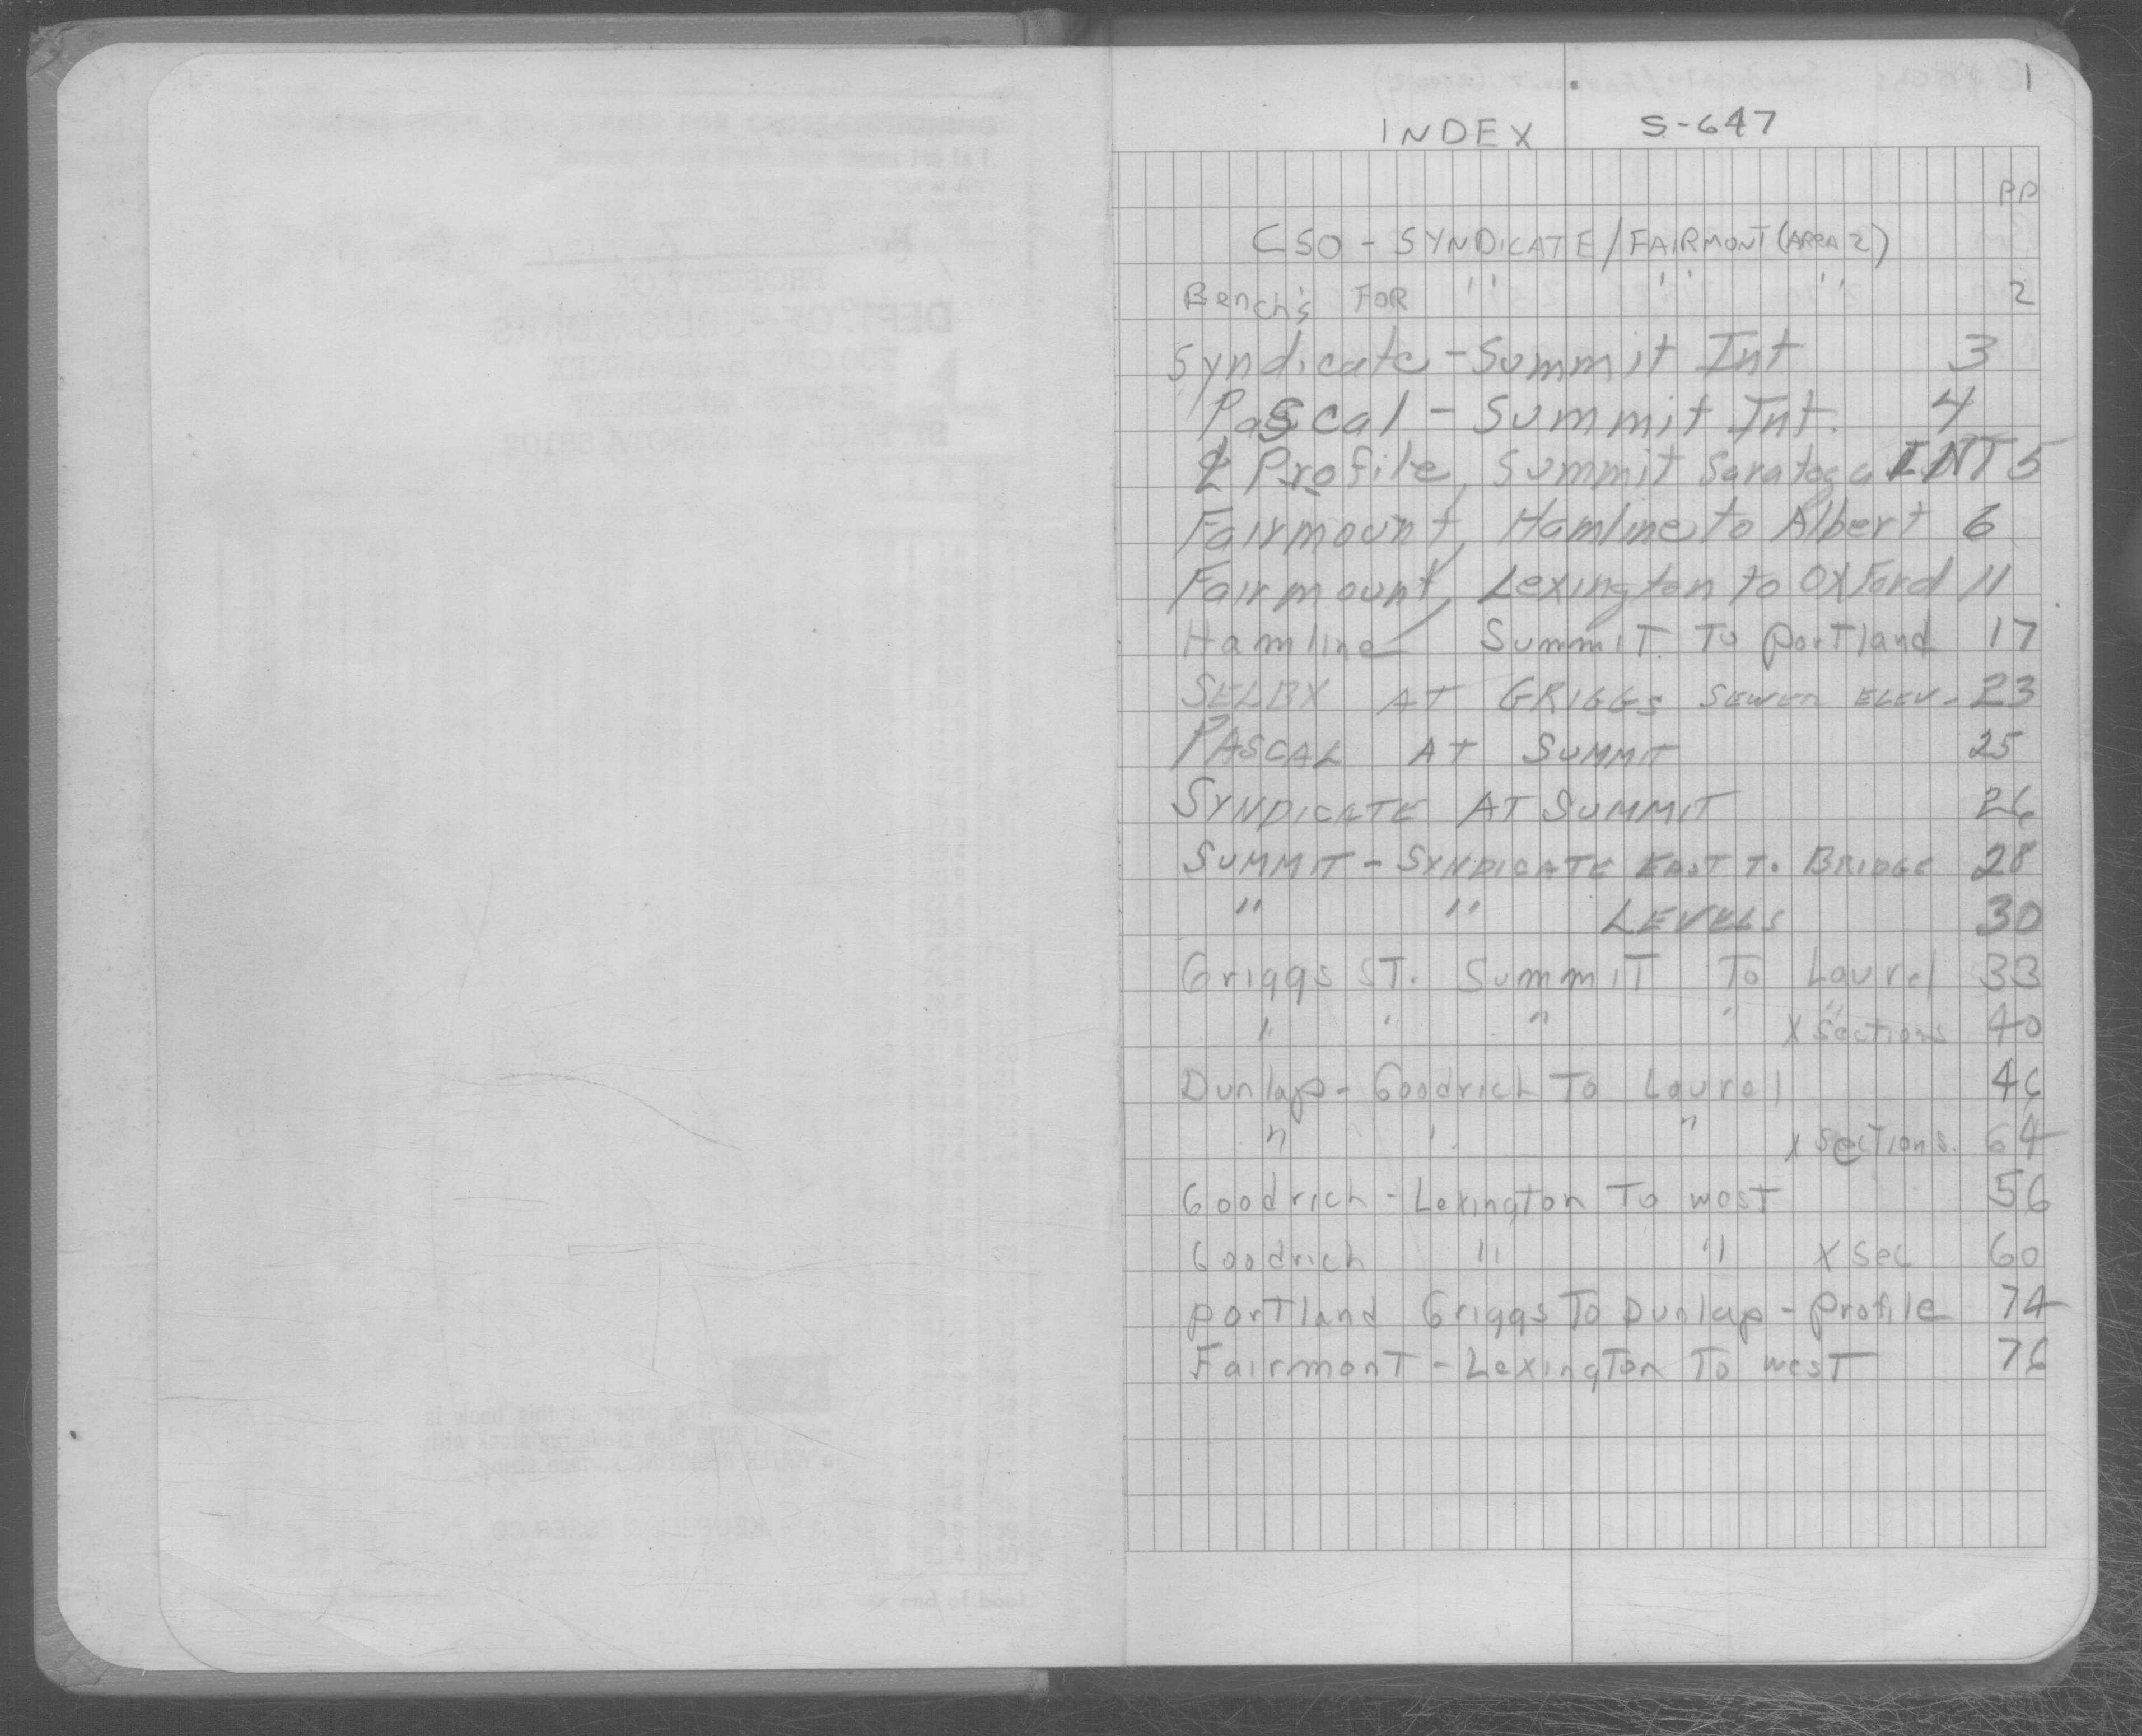 1
INDEX S-647
PP
CSO - SYNDICATE/FAIRMONT (AREA 2)
Bench's FOR " " " 2
Syndicate - Summit Int 3
Pascal - Summit Int. 4
℄ Profile, Summit Saratoga INT 5
Fairmount, Hamline to Albert 6
Fairmount, Lexington to Oxford 11
Hamline Summit To portland 17
SELBY AT GRIGGS SEWER ELEV - 23
PASCAL AT SUMMIT 25
SYNDICATE AT SUMMIT 26
SUMMIT - SYNDICATE EAST TO BRIDGE 28
" " LEVELS 30
Griggs ST. Summit To Laurel 33
" " " " " X Sections 40
Dunlap - Goodrich To Laurel 46
" " " X Sections. 64
Goodrich - Lexington To west 56
Goodrich " " X Sec 60
portland Griggs To Dunlap - Profile 74
Fairmont - Lexington To west 76